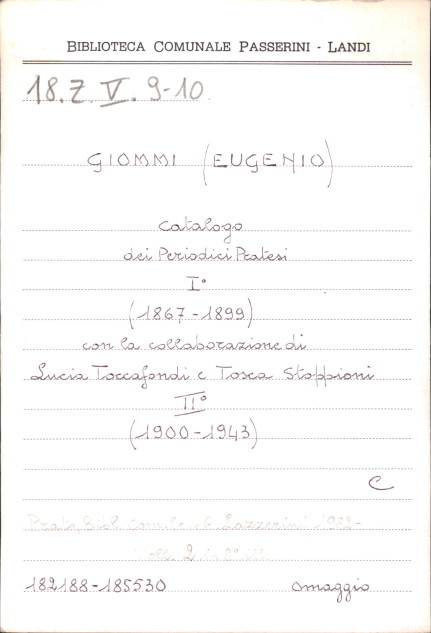 BIBLIOTECA COMUNALE PASSERINI - LANDI
18.Z.V.9-10.
GIOMMI (EUGENIO)
Catalogo
dei Periodici Pratesi
I°
(1867-1899)
con la collaborazione di
Lucia Toccafondi e Tosca Stoppioni
II°
(1900-1943)
C
Prato, Bibl. Com.le "A. Lazzerini", 1982-
Voll. 2 in 8°
182188-185530 omaggio